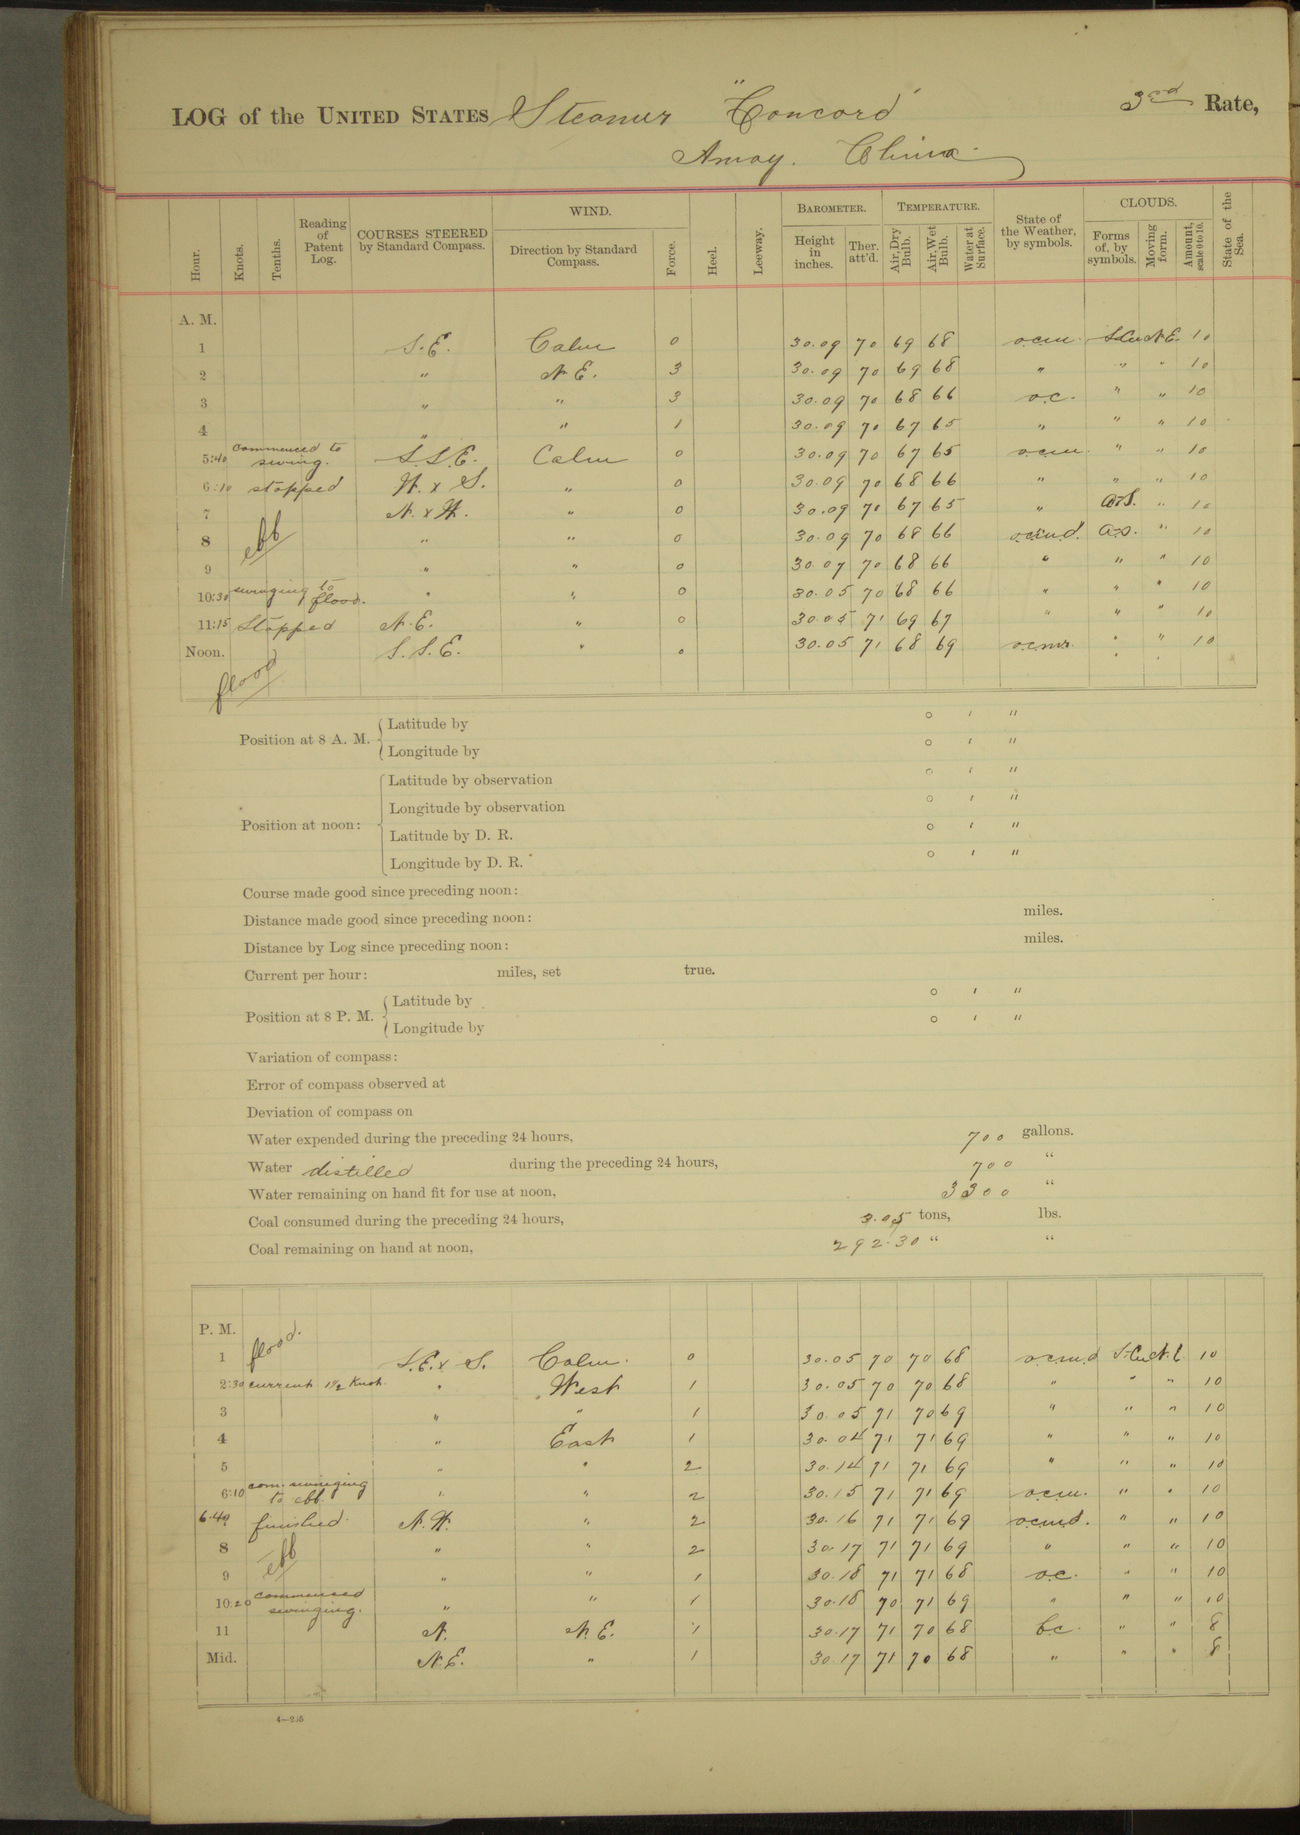 LOG of the UNITED STATES Steamer "Concord" 3rd Rate,
Amoy. China
Hour. Knots. Tenths. Reading of Patent Log. COURSES STEERED by Standard Compass. WIND. Direction by Standard Compass. Force. Heel. Leeway. BAROMETER. Height in inches. Ther. att'd. TEMPERATURE. Air, Dry Bulb. Air, Wet Bulb. Water at Surface. State of the Weather, by symbols. CLOUDS. Forms of, by symbols. Moving form. Amount, scale 0 to 10. State of the Sea.
A. M.
1 S.E. Calm 0 30.09 70 69 68 o.c.m. S.Cu N.E. 10
2 " N.E. 3 30.09 70 69 68 " " " 10
3 " " 3 30.09 70 68 66 o.c. " " 10
4 " " 1 30.09 70 67 65 " " " 10
5:40 commenced to swing. S.S.E. Calm 0 30.09 70 67 65 o.c.m. " " 10
6:10 stopped W. x S. " 0 30.09 70 68 66 " " " 10
7 N. x W. " 0 30.09 71 67 65 " A-S. " 10
8 ebb " " 0 30.09 70 68 66 o.c.m.d. A-S. " 10
9 " " 0 30.07 70 68 66 " " " 10
10:30 swinging to flood. " " 0 30.05 70 68 66 " " " 10
11:15 Stopped N.E. " 0 30.05 71 69 67 " " " 10
Noon. S.S.E. " 0 30.05 71 68 69 o.c.m.r. " " 10
flood
Position at 8 A. M. Latitude by ° ' "
Longitude by ° ' "
Position at noon: Latitude by observation ° ' "
Longitude by observation ° ' "
Latitude by D. R. ° ' "
Longitude by D. R. ° ' "
Course made good since preceding noon:
Distance made good since preceding noon: miles.
Distance by Log since preceding noon: miles.
Current per hour: miles, set true.
Position at 8 P. M. Latitude by ° ' "
Longitude by ° ' "
Variation of compass:
Error of compass observed at
Deviation of compass on
Water expended during the preceding 24 hours, 700 gallons.
Water distilled during the preceding 24 hours, 700 "
Water remaining on hand fit for use at noon, 3300 "
Coal consumed during the preceding 24 hours, 3.05 tons, lbs.
Coal remaining on hand at noon, 292.30 " "
P. M.
1 flood. S.E. x S. Calm. 0 30.05 70 70 68 o.c.m.d S-Cu N.E. 10
2:30 current 1 1/2 Knot. " West 1 30.05 70 70 68 " " " 10
3 " " 1 30.05 71 70 69 " " " 10
4 " East 1 30.04 71 71 69 " " " 10
5 " " 2 30.14 71 71 69 " " " 10
6:10 com. swinging to ebb. " " 2 30.15 71 71 69 o.c.m. " " 10
6.40 finished. N.W. " 2 30.16 71 71 69 o.c.m.d. " " 10
8 ebb " " 2 30.17 71 71 69 " " " 10
9 " " 1 30.18 71 71 68 o.c. " " 10
10:20 commenced swinging. " " 1 30.18 70 71 69 " " " 10
11 N. N.E. 1 30.17 71 70 68 b.c. " " 8
Mid. N.E. " 1 30.17 71 70 68 " " " 8